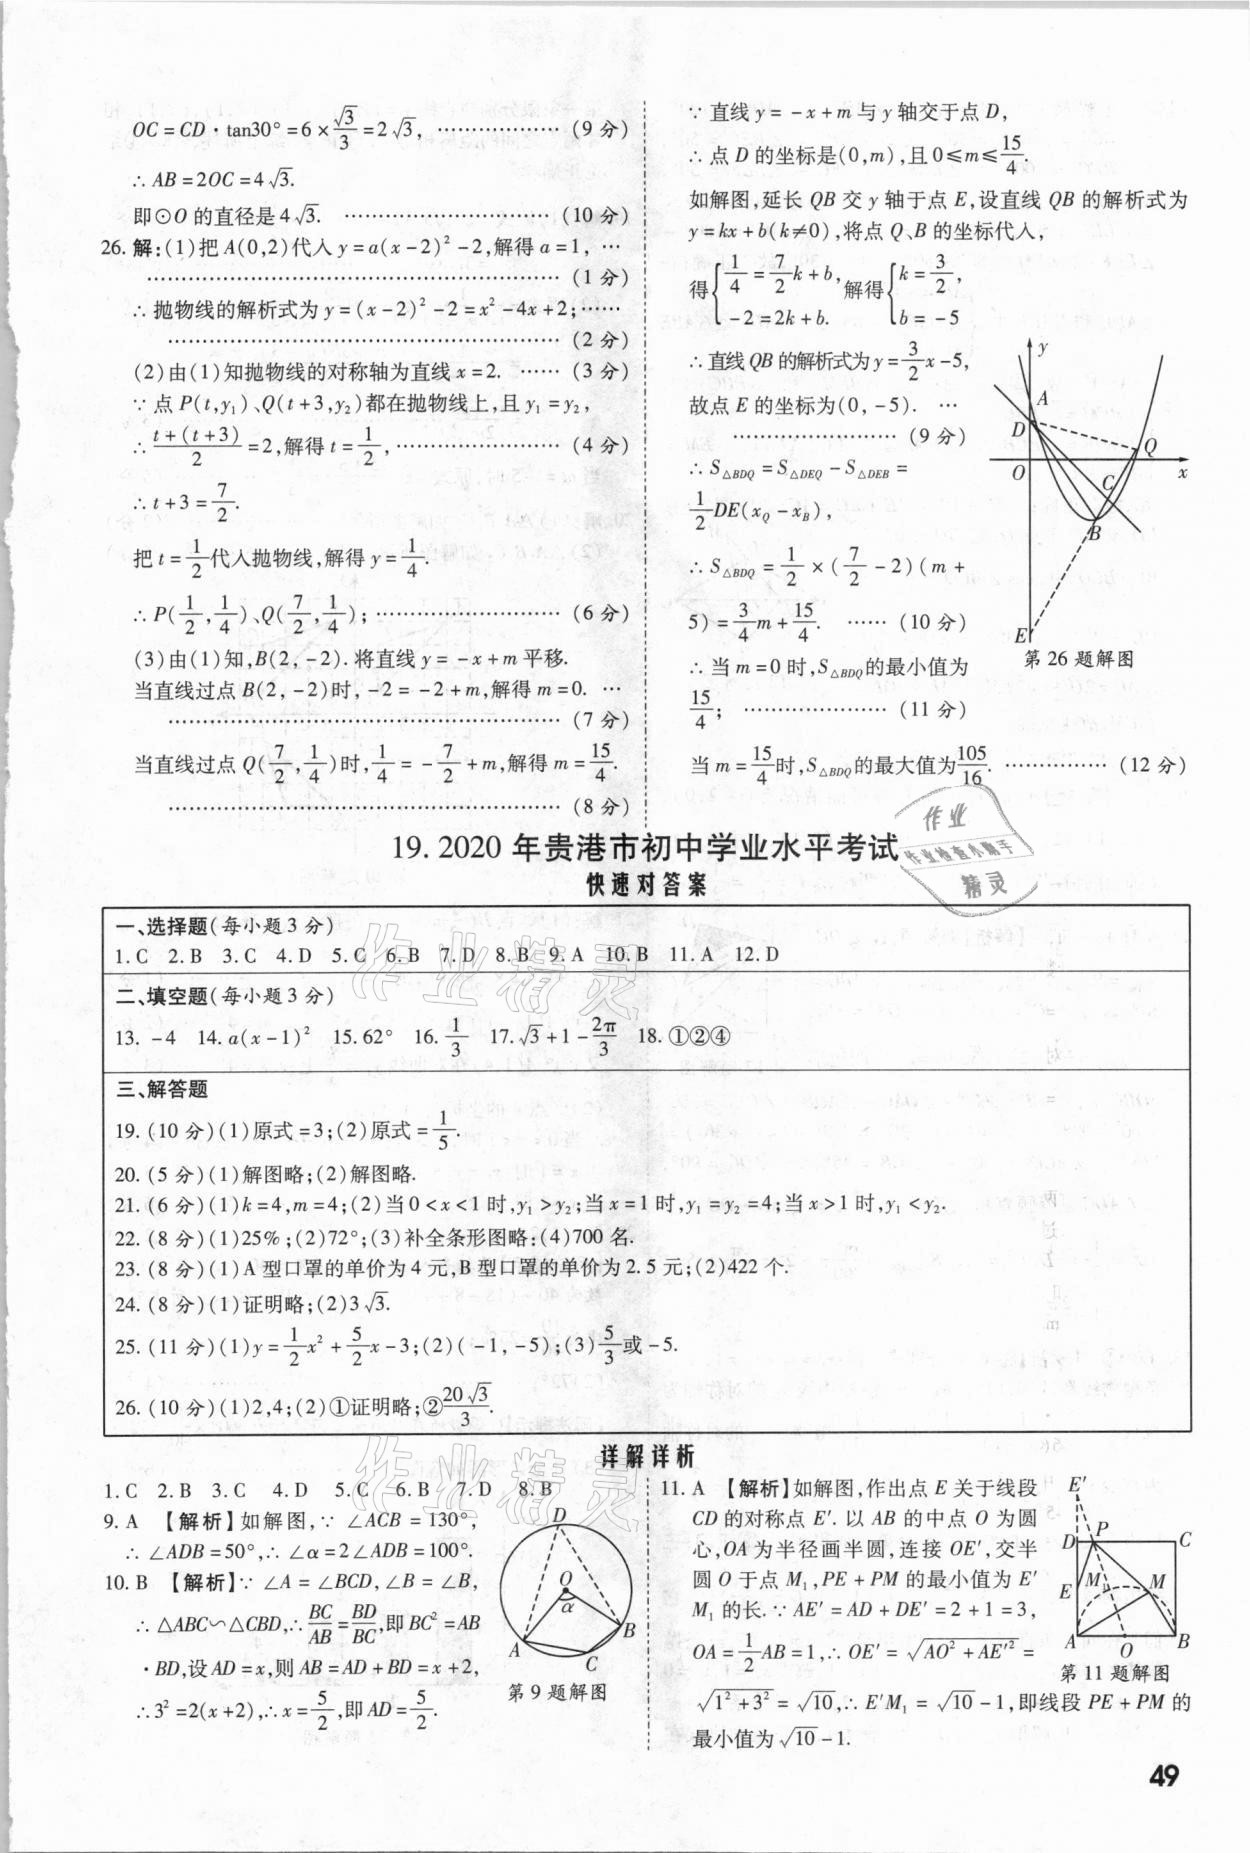 OC=CD·tan30°=6×√3/3=2√3, ………………(9分)
∴AB=2OC=4√3.
即⊙O的直径是4√3. ………………………(10分)
26.解:(1)把A(0,2)代人y=a(x-2)²-2,解得a=1, …
………………………………………………(1分)
∴抛物线的解析式为y=(x-2)²-2=x²-4x+2;……
………………………………………………(2分)
(2)由(1)知抛物线的对称轴为直线x=2. ……(3分)
∵点P(t,y₁)、Q(t+3,y₂)都在抛物线上,且y₁=y₂,
∴(t+(t+3))/2=2,解得t=1/2, ……………………(4分)
∴t+3=7/2.
把t=1/2代人抛物线,解得y=1/4.
∴P(1/2,1/4)、Q(7/2,1/4); ……………………(6分)
(3)由(1)知,B(2,-2).将直线y=-x+m平移.
当直线过点B(2,-2)时,-2=-2+m,解得m=0. …
………………………………………………(7分)
当直线过点Q(7/2,1/4)时,1/4=-7/2+m,解得m=15/4.
………………………………………………(8分)
∵直线y=-x+m与y轴交于点D,
∴点D的坐标是(0,m),且0≤m≤15/4.
如解图,延长QB交y轴于点E,设直线QB的解析式为
y=kx+b(k≠0),将点Q、B的坐标代人,
得{1/4=7/2k+b, -2=2k+b. 解得{k=3/2, b=-5
∴直线QB的解析式为y=3/2x-5,
故点E的坐标为(0,-5). …
……………………(9分)
∴S△BDQ=S△DEQ-S△DEB=
1/2DE(xQ-xB),
∴S△BDQ=1/2×(7/2-2)(m+
5)=3/4m+15/4. ……(10分)
∴当m=0时,S△BDQ的最小值为
15/4; …………………(11分)
当m=15/4时,S△BDQ的最大值为105/16. ……………(12分)
y
A
D
Q
O
x
C
B
E
第26题解图
19.2020年贵港市初中学业水平考试
快速对答案
作业
作业检查小助手
精灵
一、选择题(每小题3分)
1.C 2.B 3.C 4.D 5.C 6.B 7.D 8.B 9.A 10.B 11.A 12.D
二、填空题(每小题3分)
13.-4 14.a(x-1)² 15.62° 16.1/3 17.√3+1-2π/3 18.①②④
三、解答题
19.(10分)(1)原式=3;(2)原式=1/5.
20.(5分)(1)解图略;(2)解图略.
21.(6分)(1)k=4,m=4;(2)当0<x<1时,y₁>y₂;当x=1时,y₁=y₂=4;当x>1时,y₁<y₂.
22.(8分)(1)25%;(2)72°;(3)补全条形图略;(4)700名.
23.(8分)(1)A型口罩的单价为4元,B型口罩的单价为2.5元;(2)422个.
24.(8分)(1)证明略;(2)3√3.
25.(11分)(1)y=1/2x²+5/2x-3;(2)(-1,-5);(3)5/3或-5.
26.(10分)(1)2,4;(2)①证明略;②20√3/3.
作业精灵
作业精灵
详解详析
1.C 2.B 3.C 4.D 5.C 6.B 7.D 8.B
9.A 【解析】如解图,∵∠ACB=130°,
∴∠ADB=50°,∴∠α=2∠ADB=100°.
10.B 【解析】∵∠A=∠BCD,∠B=∠B,
∴△ABC∽△CBD,∴BC/AB=BD/BC,即BC²=AB
·BD,设AD=x,则AB=AD+BD=x+2,
∴3²=2(x+2),∴x=5/2,即AD=5/2.
D
O
α
A
B
C
第9题解图
11.A 【解析】如解图,作出点E关于线段
CD的对称点E′.以AB的中点O为圆
心,OA为半径画半圆,连接OE′,交半
圆O于点M₁,PE+PM的最小值为E′
M₁的长.∵AE′=AD+DE′=2+1=3,
OA=1/2AB=1,∴OE′=√(AO²+AE′²)=
√(1²+3²)=√10,∴E′M₁=√10-1,即线段PE+PM的
最小值为√10-1.
E′
D
P
C
E
M₁
M
A
O
B
第11题解图
49